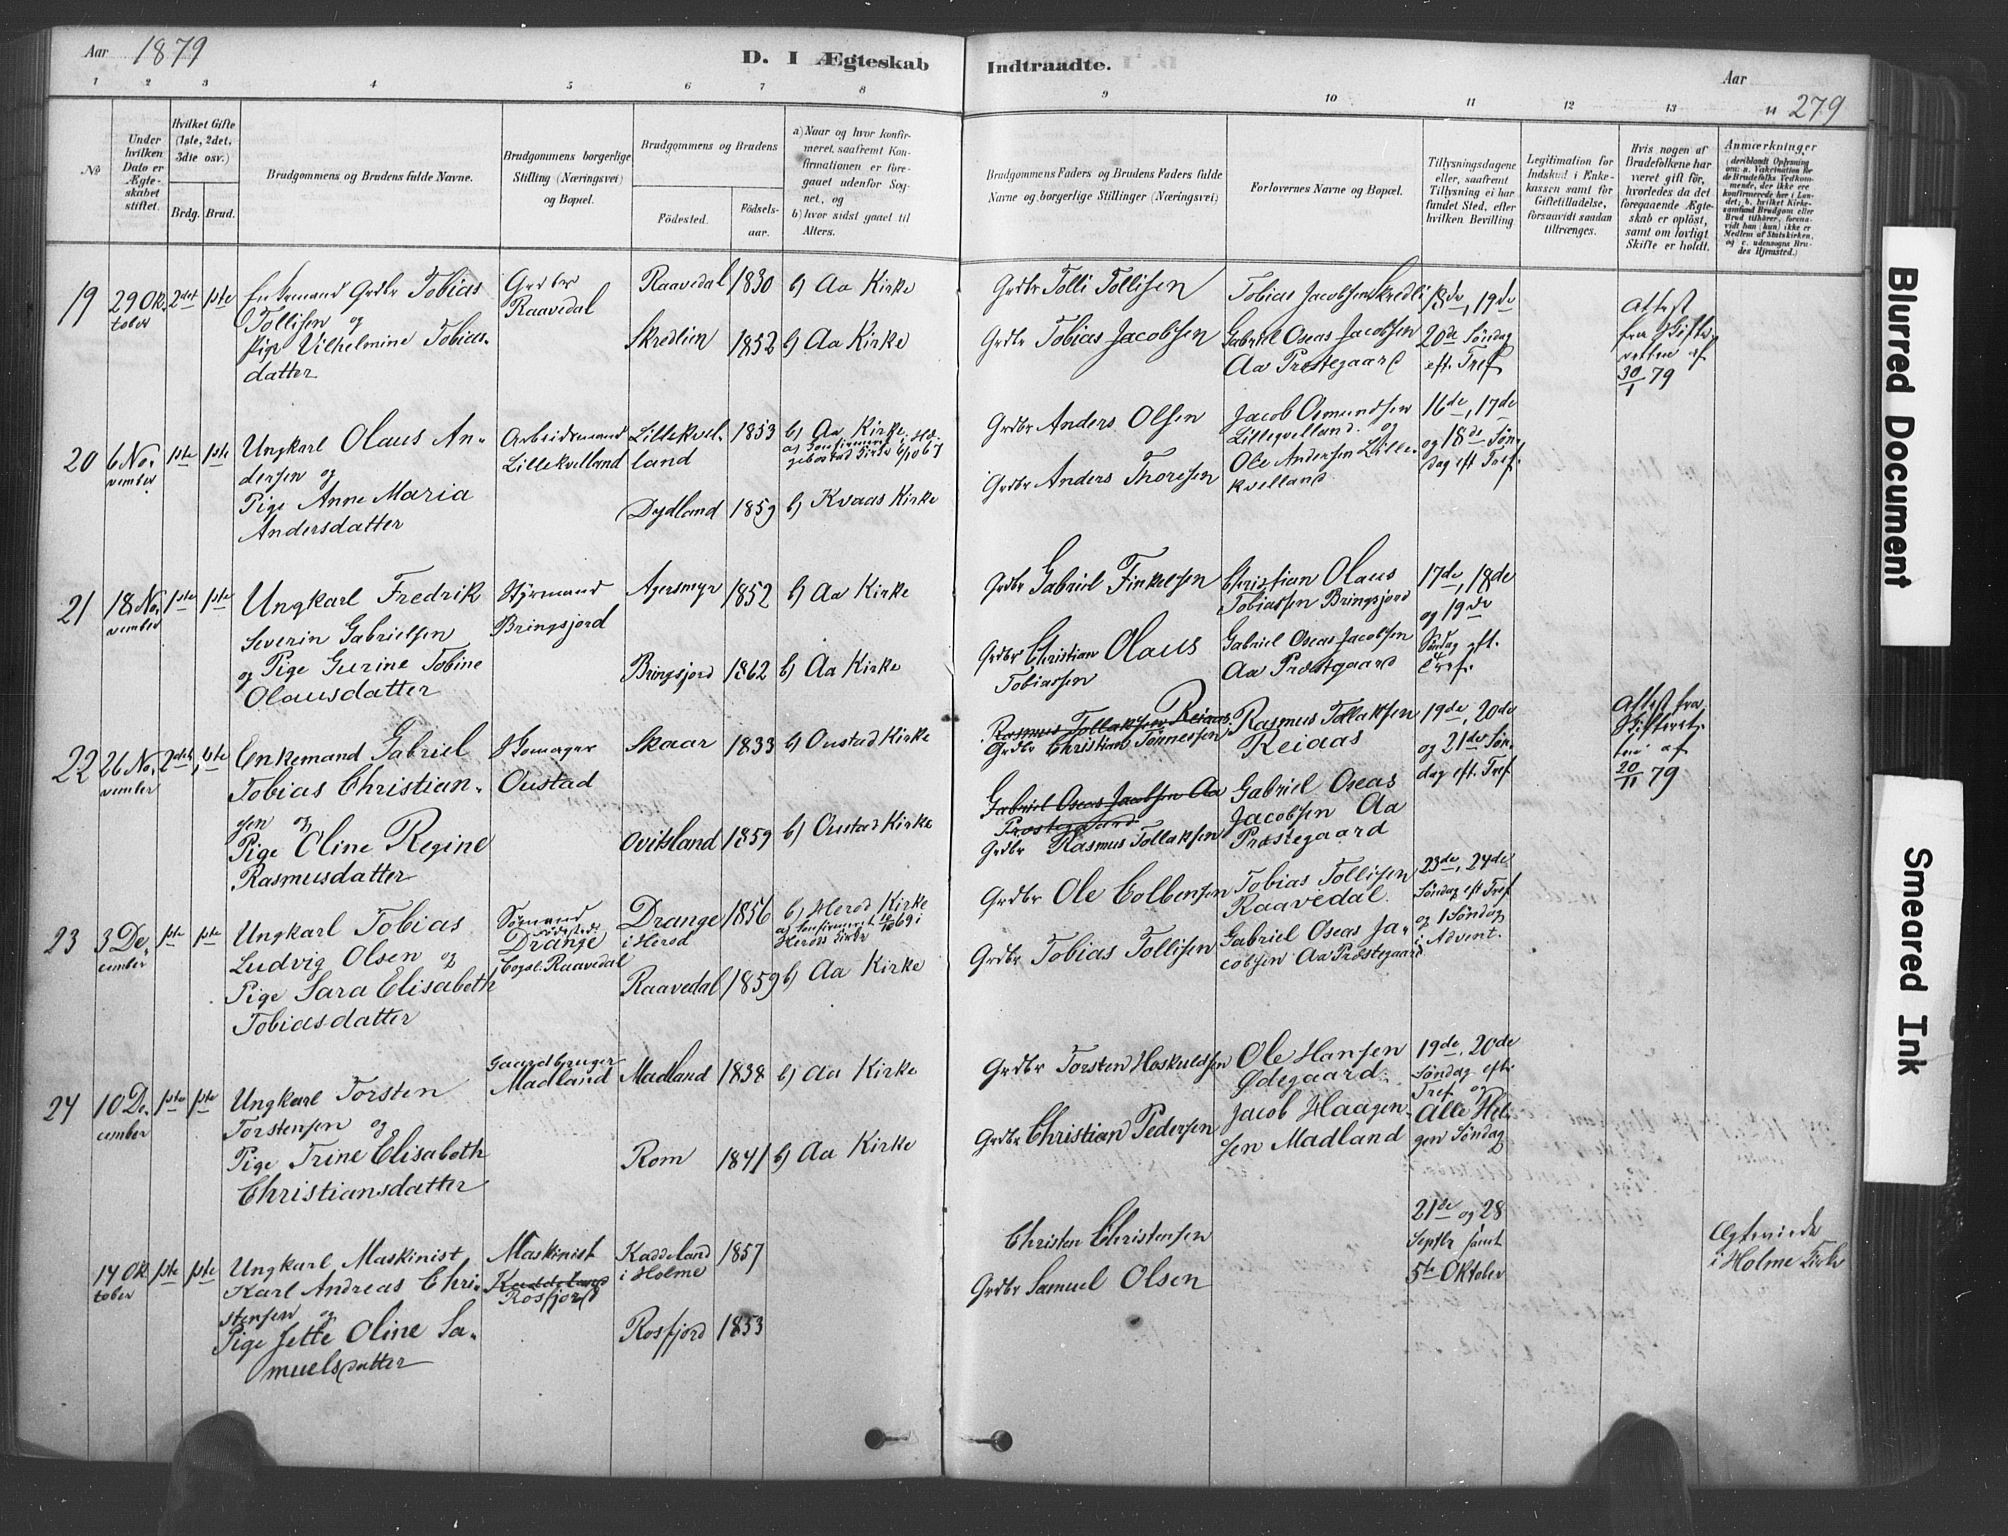 Aar 1879
D. I Ægteskab Indtraadte.
Aar
279
1 2 3 4 5 6 7 8 9 10 11 12 13 14
No
Under hvilken Dato er Ægteskabet stiftet.
Hvilket Gifte (1ste, 2det, 3die osv.)
Brdg. Brud.
Brudgommens og Brudens fulde Navne.
Brudgommens borgerlige Stilling (Næringsvei) og Bopæl.
Brudgommens og Brudens
Fødested. Fødselsaar.
a) Naar og hvor konfirmeret, saafremt Konfirmationen er foregaaet udenfor Sognet, og
b) hvor sidst gaaet til Alters.
Brudgommens Faders og Brudens Faders fulde Navne og borgerlige Stillinger (Næringsvei)
Forlovernes Navne og Bopæl.
Tillysningsdagene eller, saafremt Tillysning ei har fundet Sted, efter hvilken Bevilling
Legitimation for Indskud i Enkekassen samt for Giftetilladelse, forsaavidt saadan tiltrænges.
Hvis nogen af Brudefolkene har været gift før, hvorledes da det foregaaende Ægteskab er opløst, samt om lovligt Skifte er holdt.
Anmærkninger
19
29 Oktober
2det 1ste
Enkemand Grdbr Tobias
Tollisen og
Pige Vilhelmine Tobias-
datter
Grdbr
Raavedal
Raavedal 1830 b) Aa Kirke
Skredlien 1852 b) Aa Kirke
Grdbr Tolli Tollisen
Grdbr Tobias Jacobsen
Tobias Jacobsen Skredli
Gabriel Oseas Jacobsen
Aa Prestegaard
18de, 19de
20de Søndag
eft. Tref
Attest
fra Skifte-
retten af
30/1 79
20
6 November
1ste 1ste
Ungkarl Olaus An-
dersen og
Pige Anne Maria
Andersdatter
Arbeidsmand
Lillekvelland
Lillekvel-
land 1853 b) Aa Kirke
a) konfirmeret i Hæ-
gebostad Kirke 6/10 67
Dydland 1859 b) Kvaas Kirke
Grdbr Anders Olsen
Grdbr Anders Thoresen
Jacob Osmundsen
Lillequelland og
Ole Andersen Lille-
kvelland
16de, 17de
og 18de Søn-
dag eft Tref.
21
18 November
1ste 1ste
Ungkarl Fredrik
Severin Gabrielsen
og Pige Gurine Tobine
Olausdatter
Styrmand
Bringsjord
Agersmyr 1852 b) Aa Kirke
Bringsjord 1862 b) Aa Kirke
Grdbr Gabriel Finkelsen
Grdbr Christian Olaus
Tobiassen
Christian Olaus
Tobiassen Bringsjord
Gabriel Oseas Jacobsen
Aa Præstgaard
17de, 18de
og 19de
Søndag eft.
Tref.
22
26 November
2det 1ste
Enkemand Gabriel
Tobias Christian-
sen og
Pige Oline Regine
Rasmusdatter
Skomager
Oustad
Skaar 1833 b) Oustad Kirke
Ovitsland 1859 b) Oustad Kirke
Rasmus Tollaksen Reiaas
Grdbr Christian Tønnessen
Gabriel Oseas Jacobsen Aa
Prostegaard
Grdbr Rasmus Tollaksen
Rasmus Tollaksen
Reiaas
Gabriel Oseas
Jacobsen Aa
Præstegaard
19de, 20de
og 21de Søn-
dag eft. Tref
Attest fra
Skifteret-
ten af
20/11 79
23
3 December
1ste 1ste
Ungkarl Tobias
Ludvig Olsen og
Pige Sara Elisabeth
Tobiasdatter
Sømand
Drange
Raavedal
Drange
i Herod 1856 b) Herod Kirke
a) konfirmeret 10/10 69 i
Herods Kirke
Raavedal 1859 b) Aa Kirke
Grdbr Ole Colbensen
Grdbr Tobias Tollisen
Tobias Tollisen
Raavedal.
Gabriel Oseas Ja-
cobsen Aa Præstegaard
23de, 24de
Søndag eft Tref
og 1 Søndag
i Advent.
24
10 December
1ste 1ste
Ungkarl Torsten
Torstensen og
Pige Trine Elisabeth
Christiansdatter
Gaardbruger
Madland
Madland 1838 b) Aa Kirke
Rom 1841 b) Aa Kirke
Grdbr Torsten Hoskuldsen
Grdbr Christian Pedersen
Ole Hansen
Ødegaard.
Jacob Haagen-
sen Madland
19de, 20de
Søndag eft.
Tref og
Alle Hel-
gen Søndag
14 Oktober
1ste 1ste
Ungkarl Maskinist
Karl Andreas Chri-
stensen og
Pige Jette Oline Sa-
muelsdatter
Maskinist
Kaddeland
Rosfjord
Kaddeland
i Holme 1857
Rosfjord 1853
Christen Christensen
Grdbr Samuel Olsen
21de og 28
Septbr samt
5te Oktober
Ægteviede
i Holme Kirke
Blurred Document
Smeared Ink